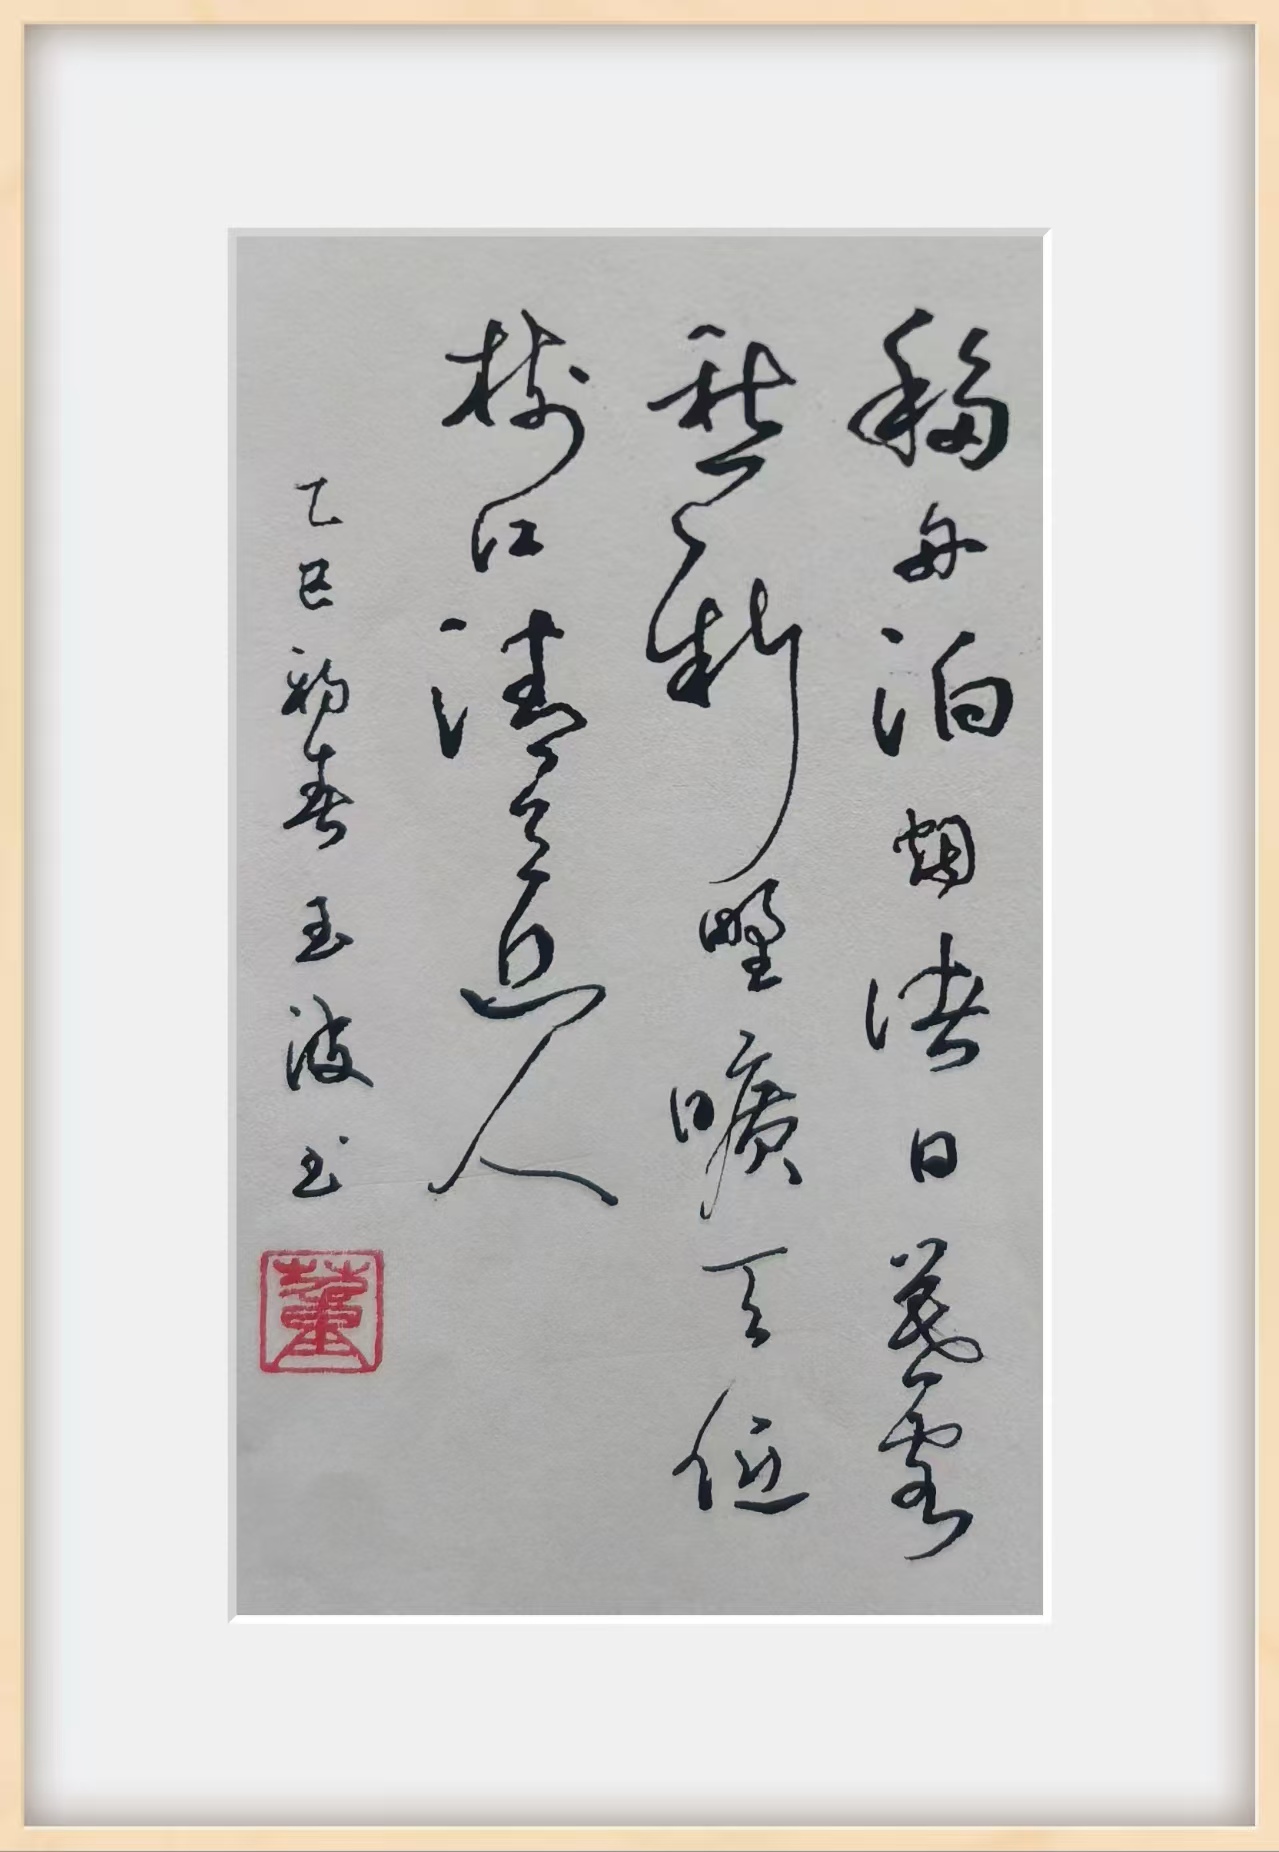 移舟泊烟渚日暮客
愁新野曠天低
樹江清月近人
乙巳初春玉波书
董